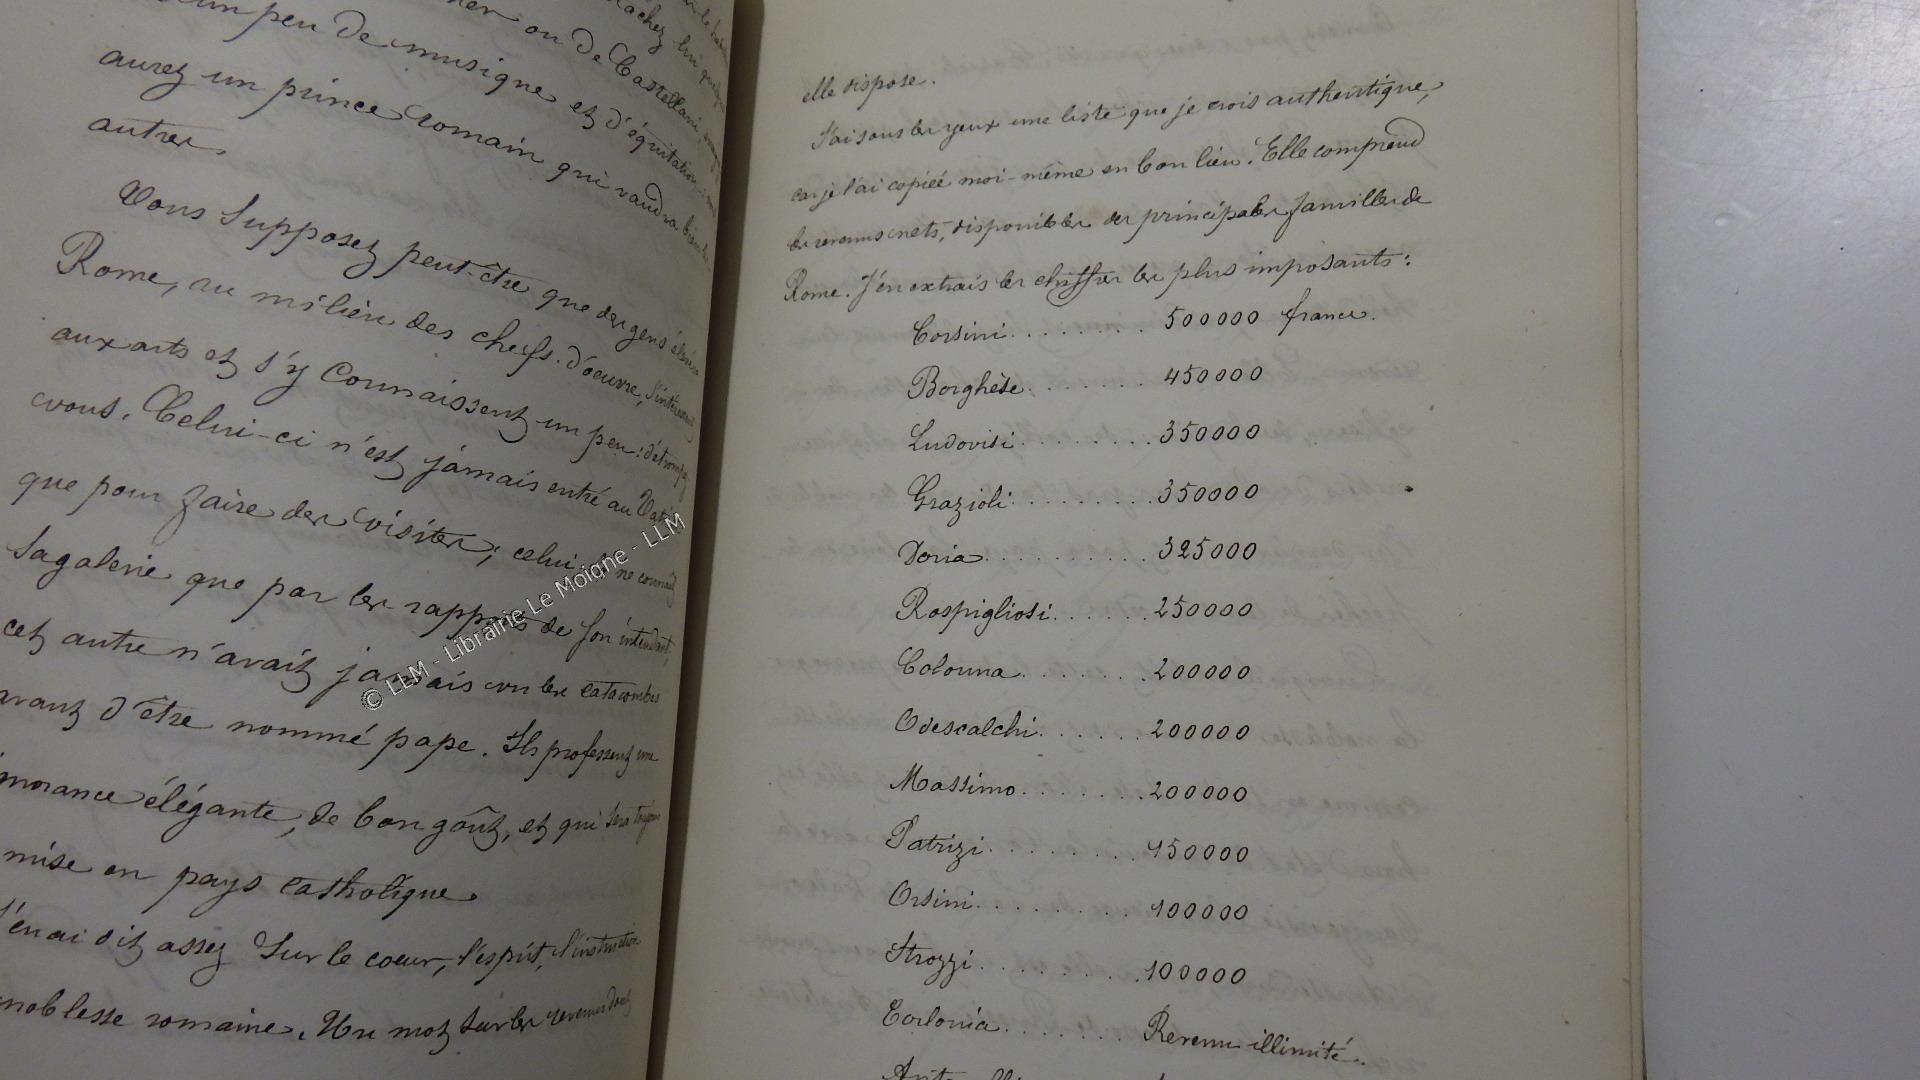 ou de Castellani,
un peu de musique et d'équitation:
aurez un prince romain qui vaudra bien les
autres.
Vous supposez peut-être que des gens élevés
Rome, au milieu des chefs-d'oeuvre, s'intéressent
aux arts et s'y connaissent un peu: détrompez
vous. Celui-ci n'est jamais entré au Vat
que pour faire des visites; celui ne connait
sa galerie que par les rapports de son intendant;
cet autre n'avait jamais vu les catacombes
avant d'être nommé pape. Ils professent une
ignorance élégante, de bon goût, et qui sera toujours
mise en pays catholique.
J'en ai dit assez sur le coeur, l'esprit, l'instruction
noblesse romaine. Un mot sur les revenus dont
elle dispose.
J'ai sous les yeux une liste que je crois authentique,
car je l'ai copiée moi-même en bon lieu. Elle comprend
les revenus nets, disponibles des principales familles de
Rome. J'en extrais les chiffres les plus imposants:
Corsini........ 500000 francs.
Borghèse....... 450000
Ludovisi........ 350000
Grazioli........ 350000
Doria.......... 325000
Rospigliosi...... 250000
Colonna....... 200000
Odescalchi...... 200000
Massimo....... 200000
Patrizi........ 150000
Orsini......... 100000
Strozzi........ 100000
Torlonia...... Revenu illimité.
© LLM - Librairie Le Moigne - LLM